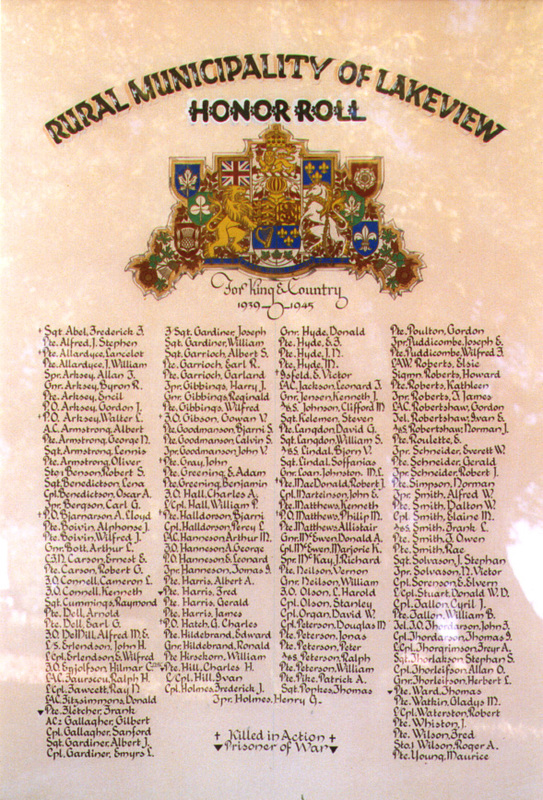 RURAL MUNICIPALITY OF LAKEVIEW
HONOR ROLL
For King & Country
1939-1945
† Sgt. Abel, Frederick F.
Pte. Alfred, J. Stephen
Pte. Allardyce, Lancelot
Pte. Allardyce, J. William
Spr. Arksey, Allan J.
Gnr. Arksey, Byron R.
Pte. Arksey, Eneil
P.O. Arksey, Gordon J.
† P.O. Arksey, Walter L.
A.C. Armstrong, Albert
Pte. Armstrong, George N.
Sgt. Armstrong, Lennis
Pte. Armstrong, Oliver
Sto1 Benson, Robert S.
Sgt. Benedictson, Lena
Cpl. Benedictson, Oscar A.
Pte. Bergson, Carl G.
† P.O. Bjarnarson, A. Lloyd
Pte. Boivin, Alphonse J.
Pte. Boivin, Wilfred J.
Gnr. Bott, Arthur L.
Carson, Ernest E.
Pte. Carson, Robert G.
F.O. Connell, Cameron L.
F.O. Connell, Kenneth
Sgt. Cummings, Raymond
Pte. Dell, Arnold
Pte. Dell, Earl G.
F.O. DelMill, Alfred M.E.
L/S. Erlendson, John H.
L/Cpl. Erlendson, E. Wilfred
F.O. Eyjolfson, Hillmar C.
LAC. Faurscou, Ralph H.
L/Cpl. Fawcett, Ray N.
LAC. Fitzsimmons, Donald
▼ Pte. Fletcher, Frank
AC2 Gallagher, Gilbert
Cpl. Gallagher, Sanford
Sgt. Gardiner, Albert J.
Cpl. Gardiner, Emyrs L.
F. Sgt. Gardiner, Joseph
Sgt. Gardiner, William
Sgt. Garrioch, Albert S.
Pte. Garrioch, Earl R.
Pte. Garrioch, Garland
Tpr. Gibbings, Harry J.
Gnr. Gibbings, Reginald
Pte. Gibbings, Wilfred
† F.O. Gibson, Gowan V.
Pte. Goodmanson, Bjarni S.
Pte. Goodmanson, Calvin S.
Tpr. Goodmanson, John V.
† Pte. Gray, John
Pte. Greening, E. Adam
Pte. Greening, Benjamin
F.O. Hall, Charles A.
L/Cpl. Hall, William P.
† Pte. Halldorson, Bjarni
Cpl. Halldorson, Percy L.
LAC. Hanneson, Arthur M.
F.O. Hanneson, A. George
P.O. Hanneson, E. Leonard
Spr. Hanneson, Tomas I.
Pte. Harris, Albert A.
▼ Pte. Harris, Fred
Pte. Harris, Gerald
Pte. Harris, James
† P.O. Hatch, G. Charles
Pte. Hildebrand, Edward
Gnr. Hildebrand, Ronald
Pte. Hirsekorn, William
Pte. Hill, Charles H.
L/Cpl. Hill, Ivan
Cpl. Holmes, Frederick J.
Tpr. Holmes, Henry G.
Gnr. Hyde, Donald
Pte. Hyde, E.F.
Pte. Hyde, J.N.
Pte. Hyde, M.
† Isfeld, E. Victor
LAC. Jackson, Leonard J.
Gnr. Jensen, Kenneth J.
A/S. Johnson, Clifford M.
Sgt. Kelemen, Steven
Pte. Langdon, David G.
Sgt. Langdon, William S.
A/S. Lindal, Bjorn V.
Sgt. Lindal, Soffanias
Gnr. Loan, Johnston M.L.
† Pte. MacDonald, Robert J.
Cpl. Marteinson, John E.
† Pte. Matthews, Kenneth
† P.O. Matthews, Philip M.
Pte. Matthews, Allistair
Gnr. McEwen, Donald A.
Cpl. McEwen, Marjorie K.
Spr. McKay, J. Richard
Pte. Neilson, Vernon
Gnr. Neilson, William
F.O. Olson, C. Harold
Cpl. Olson, Stanley
Cpl. Organ, David W.
L/Cpl. Peterson, Douglas M.
Pte. Peterson, Jonas
Pte. Peterson, Peter
A/S. Peterson, Ralph
Pte. Peterson, William
Pte. Pike, Patrick A.
Sgt. Popkes, Thomas
Pte. Poulton, Gordon
Tpr. Puddicombe, Joseph E.
Pte. Puddicombe, Wilfred F.
LAW. Roberts, Elsie
Sigmn. Roberts, Howard
Pte. Roberts, Kathleen
Tpr. Roberts, T. James
LAC. Robertshaw, Gordon
Tel. Robertshaw, Ivan E.
A/S. Robertshaw, Norman J.
Pte. Roulette, E.
Tpr. Schneider, Everett W.
Pte. Schneider, Gerald
Pte. Schneider, Robert J.
Pte. Simpson, Norman
Tpr. Smith, Alfred W.
Pte. Smith, Dalton W.
Cpl. Smith, Elaine M.
A/S. Smith, Frank L.
Pte. Smith, J. Owen
Pte. Smith, Rae
Sgt. Solvason, J. Stephan
Tpr. Solvason, N. Victor
Cpl. Sorenson, E. Elvern
L/Cpl. Stuart, Donald W.D.
Cpl. Tallon, Cyril J.
Pte. Tallon, William B.
Tel. F.O. Thordarson, John F.
Cpl. Thordarson, Thomas I.
L/Cpl. Thorgrimson, Freyr A.
Sgt. Thorlakson, Stephan S.
Cpl. Thorleifson, Allan O.
Gnr. Thorleifson, Herbert L.
▼ Pte. Ward, Thomas
Pte. Watkin, Gladys M.
L/Cpl. Waterston, Robert
Pte. Whiston, J.
Pte. Wilson, Fred
Sto1 Wilson, Roger A.
Pte. Young, Maurice
† Killed in Action †
▼ Prisoner of War ▼